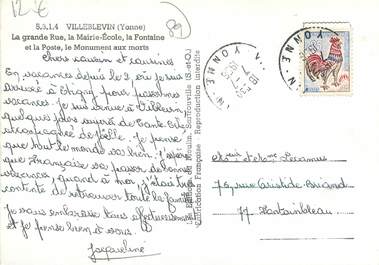 12 €
89
S.3.1.4 VILLEBLEVIN (Yonne)
La grande Rue, la Mairie-École, la Fontaine
et la Poste, le Monument aux morts
Chers cousin et cousines
En vacances depuis le 3, où je suis
arrivée à Etigny pour passer mes
vacances. Je suis venue à Villevin,
quelques jours auprès de Tante
Je pense
que tout le monde va bien, j'espère
que Françoise va passer de bonnes
vacances, quand à moi, j'étais très
contente de retrouver toute la famille
Je vous embrasse tous affectueusement
et je pense bien à vous.
Jacqueline
Les Éditions du Moulin, Sartrouville (S.-et-O.)
Fabrication Française Reproduction interdite
YONNE
YONNE
75, rue Aristide Briand
77 Fontainebleau